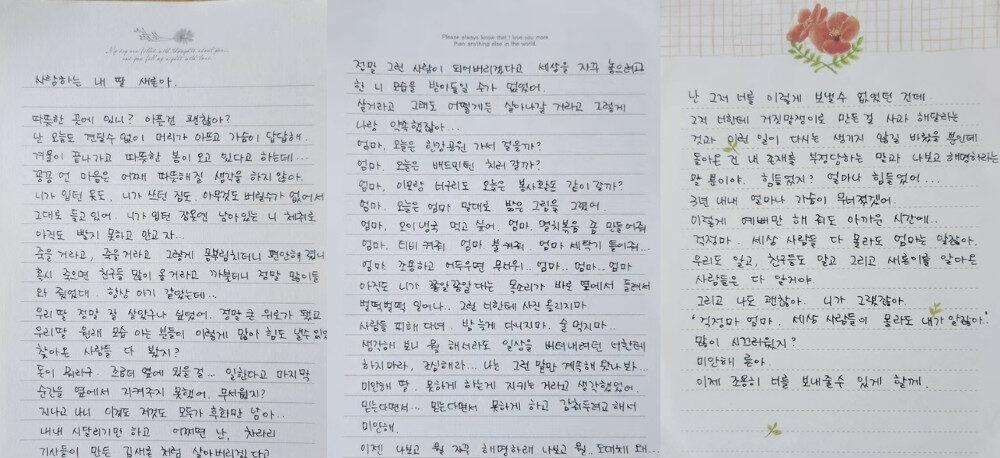 사랑하는 내 딸 새론아.
따뜻한 곳에 있니? 아픈건 괜찮아?
난 오늘도 견딜수 없이 머리가 아프고 가슴이 답답해.
겨울이 끝나가고 따뜻한 봄이 오고 있다고 하는데...
꽁꽁 언 마음은 어째 따뜻해질 생각을 하지 않아.
니가 입던 옷도, 니가 쓰던 짐도. 아무것도 버릴수가 없어서
그대로 들고 있어. 니가 입던 잠옷엔 남아있는 니 체취로
아직도 빨지 못하고 안고 자...
죽을 거라고, 죽을거라고 그렇게 몸부림치더니 편안해 졌니?
혹시 죽으면 친구들 많이 올 거라고 까불더니 정말 많이들
와 줬었대. 항상 아기 같았는데...
우리 딸 정말 잘 살았구나 싶었어. 정말 큰 위로가 됐고
우리 딸 원래 모습 아는 분들이 이렇게 많아 힘도 낼수 있었
찾아온 사람들 다 봤지?
돈이 뭐라구. 조금더 옆에 있을 걸... 일한다고 마지막
순간을 옆에서 지켜주지 못했어. 무서웠지?
지나고 나니 이것도 저것도 모두가 후회만 남아..
내내 시달리기만 하고 어쩌면 난, 차라리
기사들이 만든 김새론 처럼 살아버리겠다고
Please always know that I love you more
than anything else in the world.
정말 그런 사람이 되어버리겠다고 세상을 자꾸 놓으려고
한 니 모습을 받아들일 수가 없었어.
살거라고 그래도 어떻게든 살아나갈 거라고 그렇게
나랑 약속했잖아...
엄마. 오늘은 한강공원 가서 걸을까?
엄마. 오늘은 배드민턴 치러 갈까?
엄마. 이모랑 너구리도 오늘은 봉사활동 같이 갈까?
엄마. 오늘은 엄마 말대로 밝은 그림을 그렸어.
엄마. 오이냉국 먹고 싶어. 엄마. 멸치볶음 좀 만들어줘
엄마. 티비 켜줘 엄마 불 켜줘. 엄마 세탁기 돌려줘...
엄마. 조용하고 어두우면 무서워.. 엄마.. 엄마.. 엄마
아직도 니가 쫑알쫑알대는 목소리가 바로 옆에서 들려서
벌떡벌떡 일어나.. 그런 너한테 사진 올리지마
사람들 피해 다녀. 밤 늦게 다니지마. 술 먹지마..
생각해 보니 뭘 해서라도 일상을 버텨내려던 너한테
하지마라, 조심해라... 나는 그런 말만 계속해 댔나 봐...
미안해 딸. 못하게 하는게 지키는 거라고 생각했었어.
믿는다면서... 믿는다면서 못하게 하고 감춰두려고 해서
미안해.
이젠 나보고 뭘 자꾸 해명하래 나보고 뭘.. 도대체 왜..
난 그저 너를 이렇게 보낼수 없었던 건데
그저 너한테 거짓말쟁이로 만든 걸 사과 해달라는
것과 이런 일이 다시는 생기지 않길 바랬을 뿐인데
돌아온 건 내 존재를 부정당하는 말과 나보고 해명하라는
말 뿐이야. 힘들었지? 얼마나 힘들었어...
3년 내내 얼마나 가슴이 무너졌겠어.
이렇게 예뻐만 해 줘도 아까운 시간에..
걱정마. 세상 사람들 다 몰라도 엄마는 알잖아.
우리도 알고, 친구들도 알고 그리고 새론이를 알아온
사람들은 다 알거야.
그리고 나도 괜찮아. 니가 그랬잖아.
'걱정마 엄마. 세상 사람들이 몰라도 내가 알잖아.'
많이 시끄러웠지?
미안해 론아.
이제 조용히 너를 보내줄수 있게 할께.